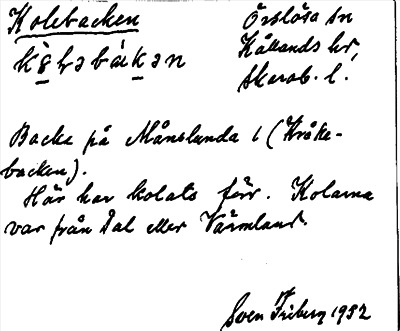 Kolebacken
Örslösa sn
Kållands hd,
Skarab. l.
Backe på Månslunda 1 (Kråke-
backen).
Här har kolats förr. Kolarna
var från Dal eller Värmland.
Sven Friberg 1932